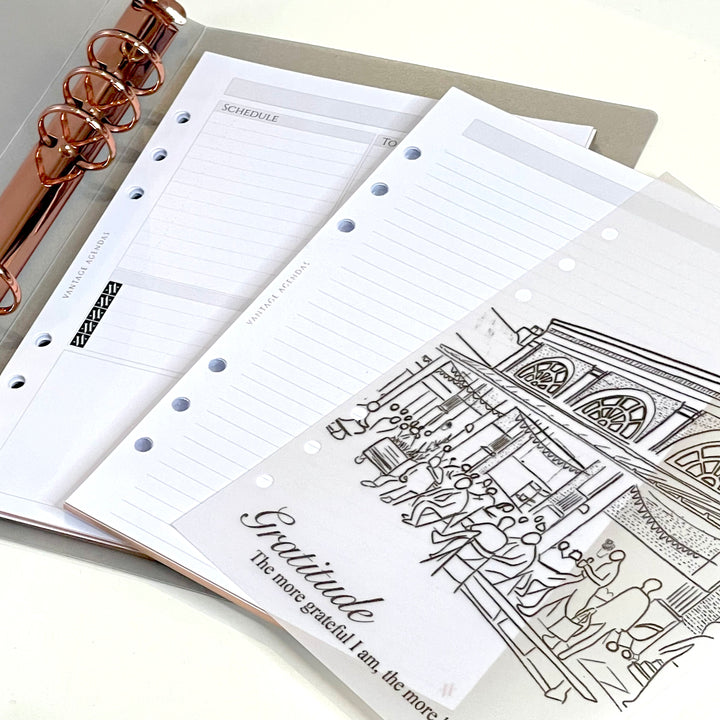 SCHEDULE
TO
VANTAGE AGENDAS
VANTAGE AGENDAS
Gratitude
The more grateful I am, the more